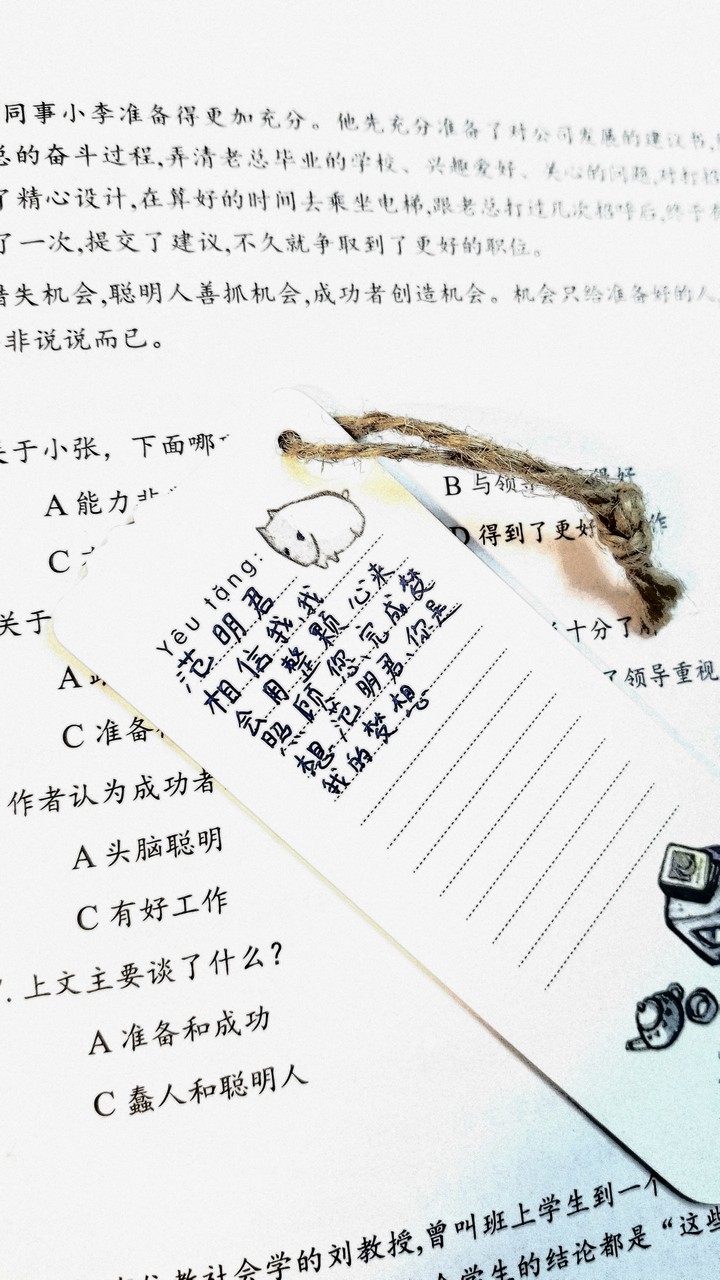 同事小李准备得更加充分。他先充分准备了对公司发展的建议书,
总的奋斗过程,弄清老总毕业的学校、兴趣爱好、关心的问题,对打招
了精心设计,在算好的时间去乘坐电梯,跟老总打过几次招呼后,终于有
了一次,提交了建议,不久就争取到了更好的职位。
错失机会,聪明人善抓机会,成功者创造机会。机会只给准备好的人,
非说说而已。
关于小张，下面哪
A 能力非
B 与领
得好
C
D 得到了更好
作
Yêu tặng:
范明君
相信我,我
会用整颗心来
照顾您、完成梦
想、范明君、你是
我的梦想
关于
十分了
A
了领导重视
C 准备
作者认为成功者
A 头脑聪明
C 有好工作
7. 上文主要谈了什么？
A 准备和成功
C 蠢人和聪明人
教社会学的刘教授,曾叫班上学生到一个
个学生的结论都是“这些